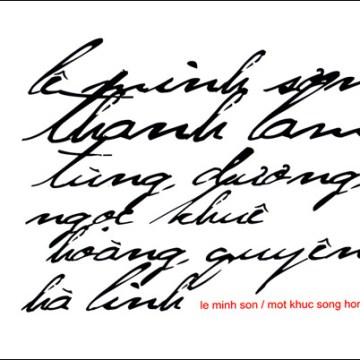 lê minh sơn
thanh lam
tùng dương
ngọc khuê
hoàng quyên
hà linh
le minh son / mot khuc song hon